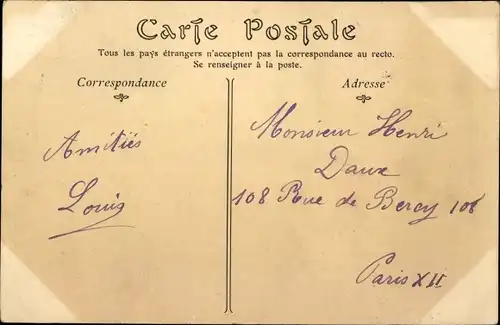 Carte Postale
Tous les pays étrangers n'acceptent pas la correspondance au recto.
Se renseigner à la poste.
Correspondance
Adresse
Amitiés
Louis
Monsieur Henri
Daux
108 Rue de Bercy 108
Paris XII